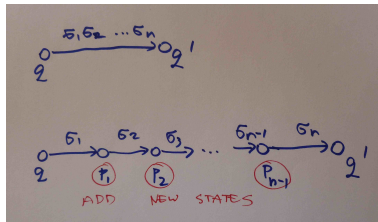 σ₁σ₂ ... σₙ
q q'
σ₁ σ₂ σ₃ ... σₙ₋₁ σₙ
q P₁ P₂ Pₙ₋₁ q'
ADD NEW STATES